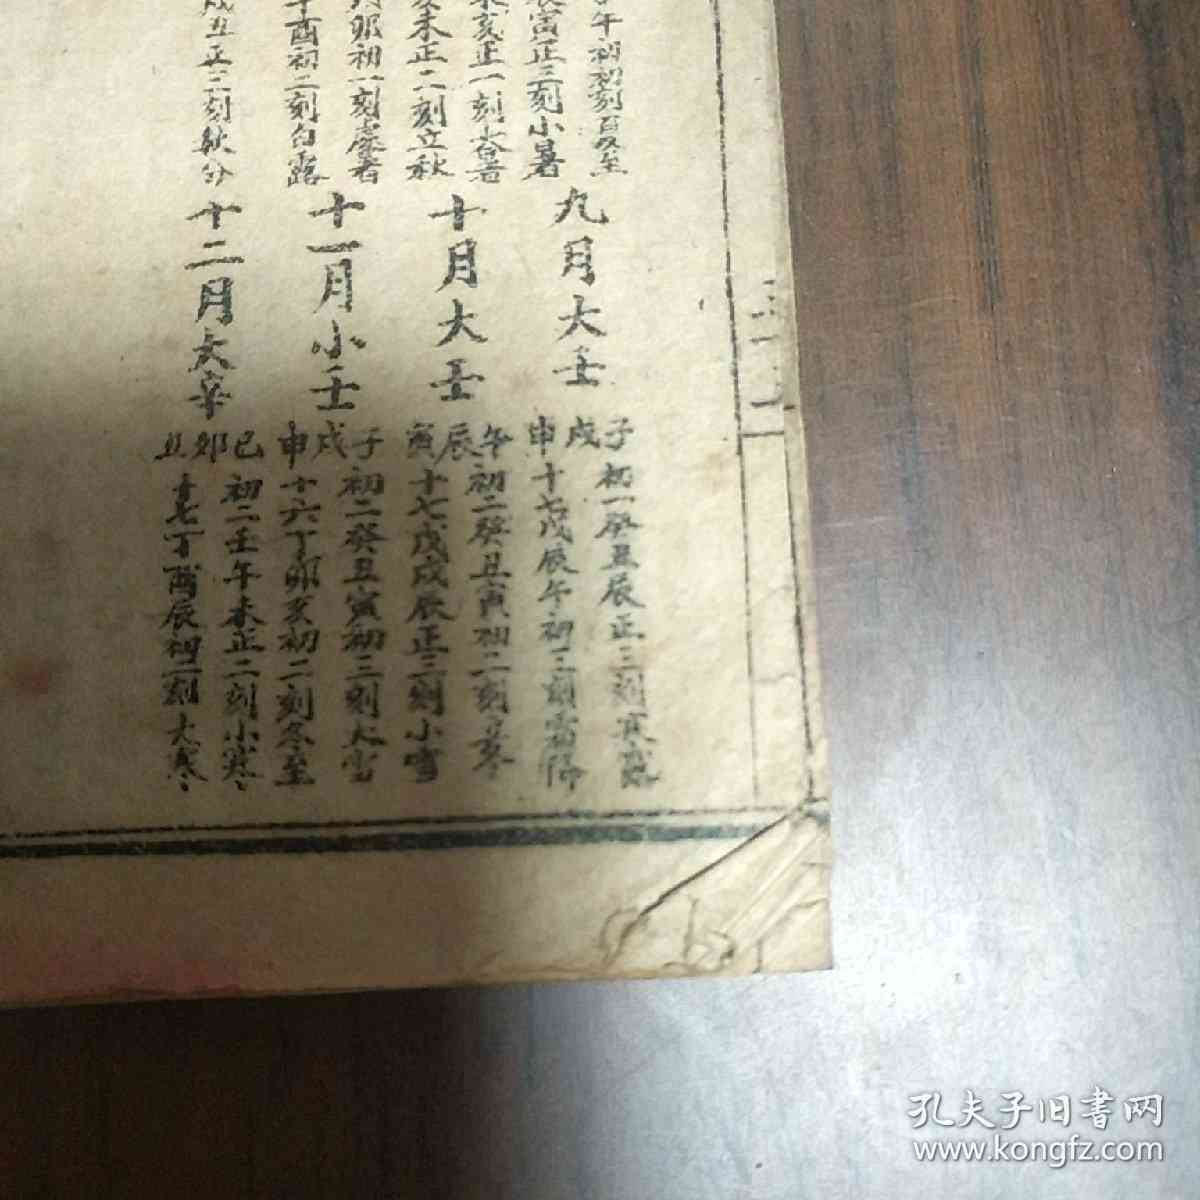 午初初刻夏至
寅正三刻小暑
亥正一刻大暑
未正二刻立秋
卯初一刻處暑
酉初二刻白露
戌丑正三刻秋分
九月大壬
子戌申
初一癸丑辰正三刻寒露
十七戊辰午初三刻霜降
十月大壬
午辰寅
初二癸丑寅初二刻立冬
十七戊戌辰正三刻小雪
十一月小壬
子戌申
初二癸丑寅初三刻大雪
十六丁卯亥初二刻冬至
十二月大辛
巳卯丑
初二壬午未正二刻小寒
十七丁酉辰初二刻大寒
孔夫子旧書网
www.kongfz.com